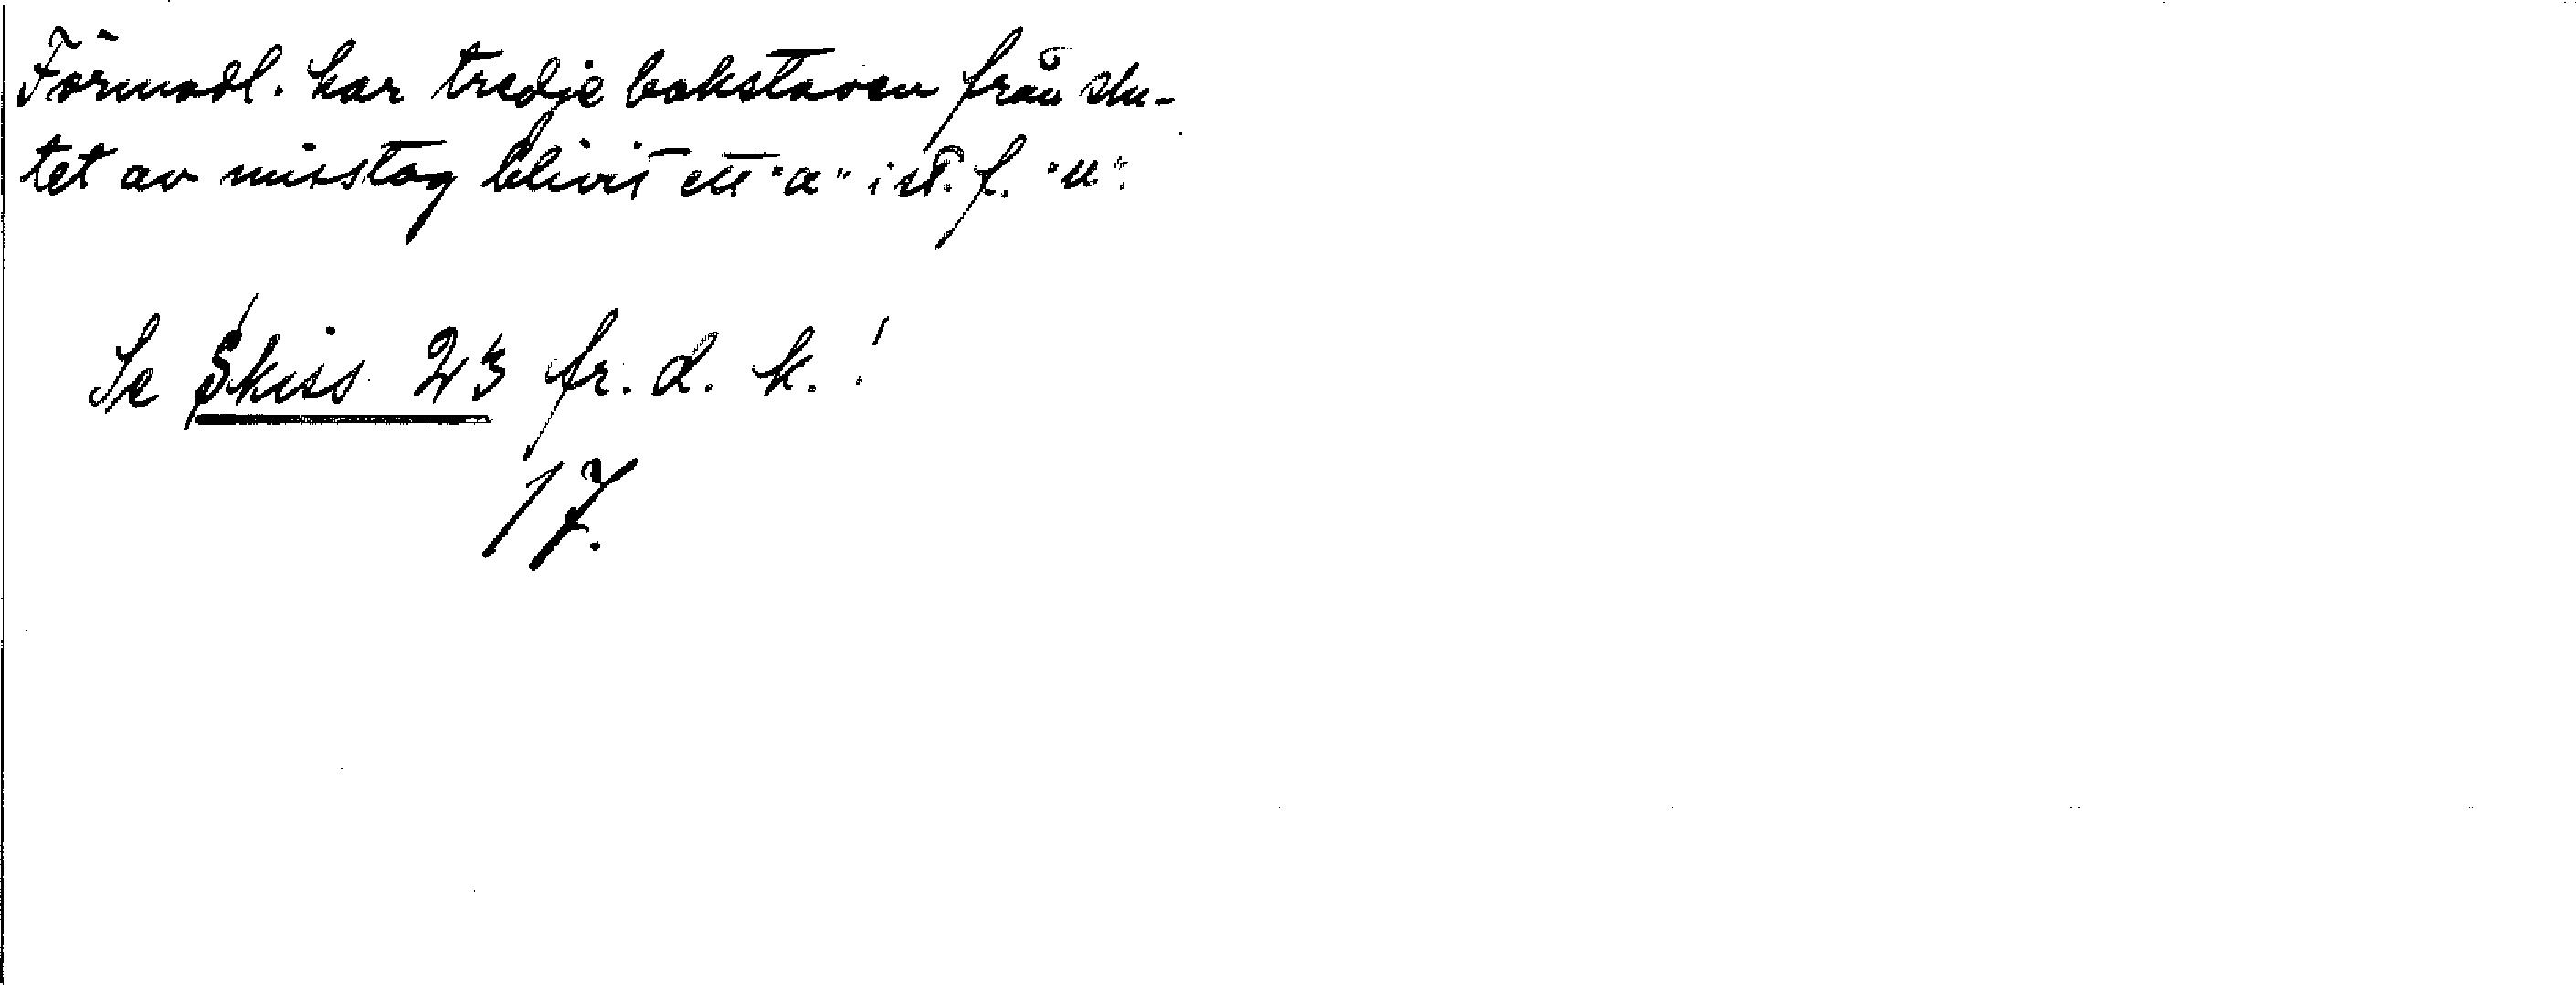 Förmodl. har tredje bokstaven från slu-
tet av misstag blivit ett "a" i st. f. "u".
Se Skiss 23 fr. d. k.!
17.